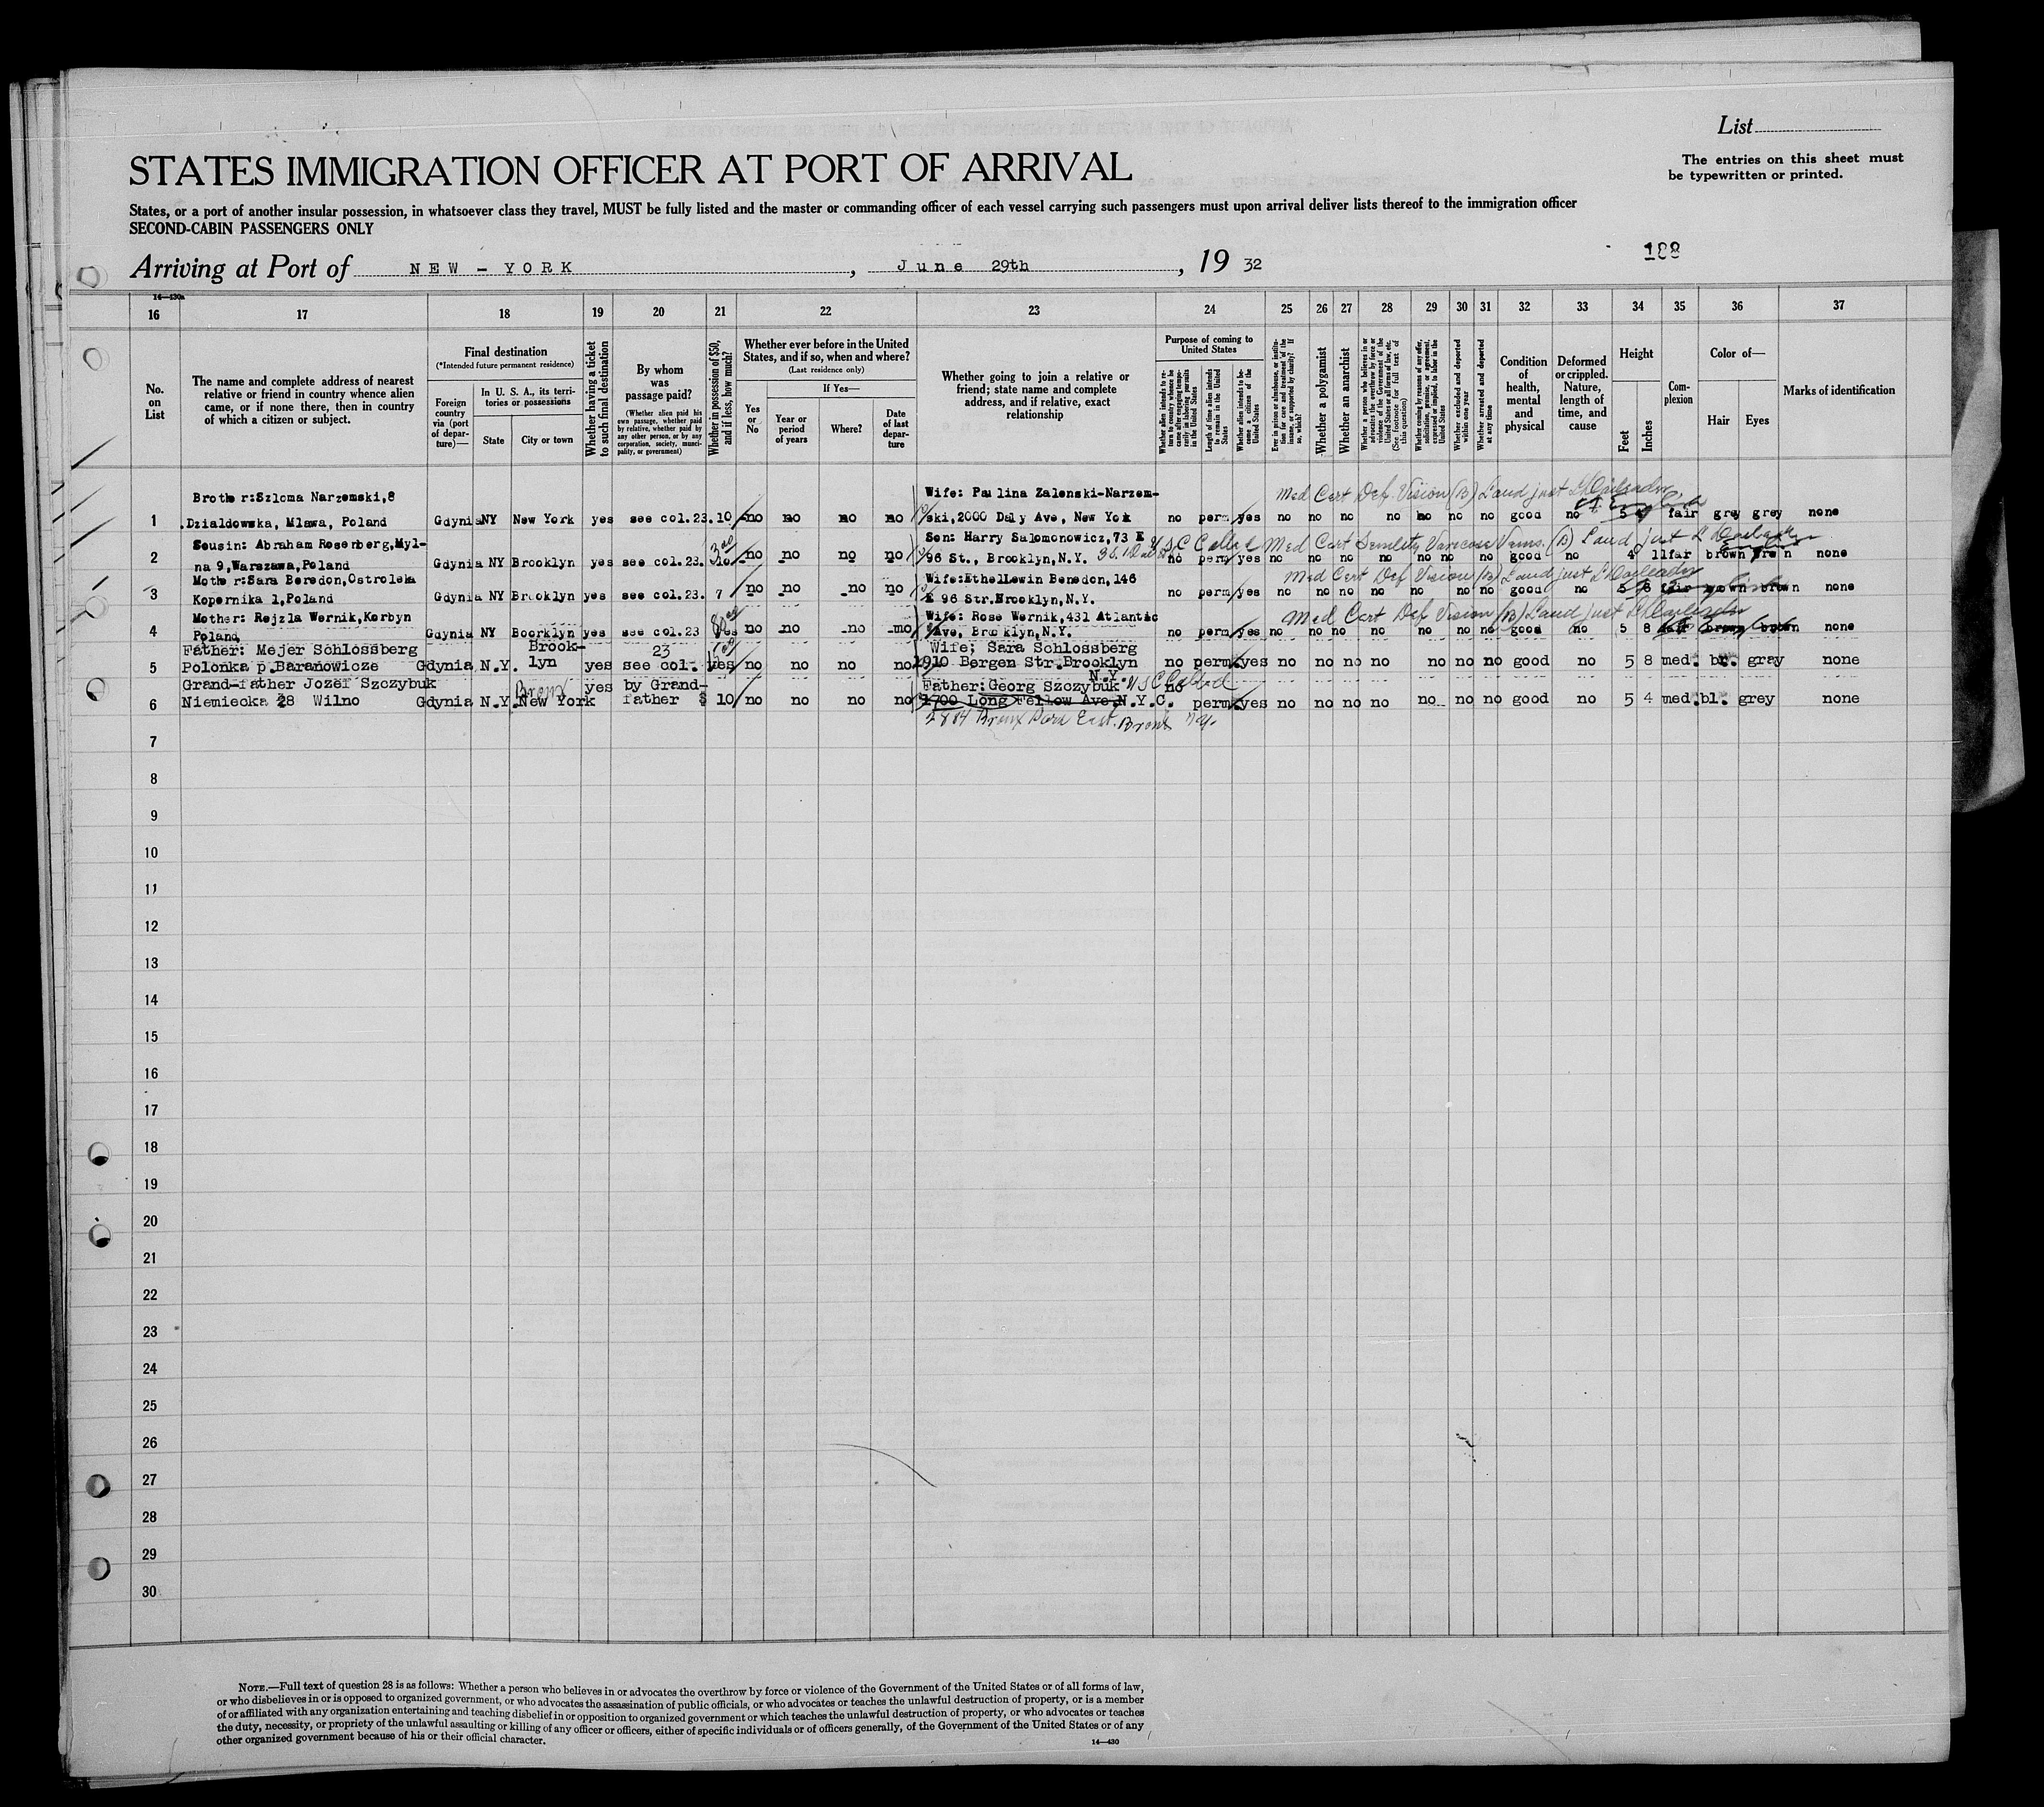 List
STATES IMMIGRATION OFFICER AT PORT OF ARRIVAL
The entries on this sheet must
be typewritten or printed.
States, or a port of another insular possession, in whatsoever class they travel, MUST be fully listed and the master or commanding officer of each vessel carrying such passengers must upon arrival deliver lists thereof to the immigration officer
SECOND-CABIN PASSENGERS ONLY
188
Arriving at Port of NEW - YORK, June 29th, 19 32
14—430a
16 17 18 19 20 21 22 23 24 25 26 27 28 29 30 31 32 33 34 35 36 37
No. on List
The name and complete address of nearest relative or friend in country whence alien came, or if none there, then in country of which a citizen or subject.
Final destination
(*Intended future permanent residence)
Foreign country via (port of departure)—
In U. S. A., its territories or possessions
State
City or town
Whether having a ticket to such final destination
By whom was passage paid?
(Whether alien paid his own passage, whether paid by relative, whether paid by any other person, or by any corporation, society, municipality, or government)
Whether in possession of $50, and if less, how much?
Whether ever before in the United States, and if so, when and where?
(Last residence only)
Yes or No
If Yes—
Year or period of years
Where?
Date of last departure
Whether going to join a relative or friend; state name and complete address, and if relative, exact relationship
Purpose of coming to United States
Whether alien intends to return to country whence he came after engaging temporarily in laboring pursuits in the United States
Length of time alien intends to remain in the United States
Whether alien intends to become a citizen of the United States
Ever in prison or almshouse, or institution for care and treatment of the insane, or supported by charity? If so, which?
Whether a polygamist
Whether an anarchist
Whether a person who believes in or advocates the overthrow by force or violence of the Government of the United States or all forms of law, etc. (See footnote for full text of this question)
Whether coming by reason of any offer, solicitation, promise, or agreement, expressed or implied, to labor in the United States
Whether excluded and deported within one year
Whether arrested and deported at any time
Condition of health, mental and physical
Deformed or crippled. Nature, length of time, and cause
Height
Feet
Inches
Complexion
Color of—
Hair
Eyes
Marks of identification
Brother:Szloma Narzemski,8 Wife: Paulina Zalenski-Narzem- Med Cert Def. Vision (B) Land just
1 Dzialdowska, Mlawa, Poland Gdynia NY New York yes see col.23. 10 no no no no ski,2000 Daly Ave, New Yok no perm yes no no no no no no no good no 5 fair grey grey none
Sousin: Abraham Rosenberg,Myl- Son: Harry Salomonowicz,73 E USC Called Med Cert Senility Varicose Veins. (B) Land just
2 na 9,Warszawa,Poland Gdynia NY Brooklyn yes see col.23. no no no no 96 St., Brooklyn,N.Y. no perm yes no no no no no no no good no 4 11 fair brown none
Mother:Sara Beredon,Ostroleka Wife:Ethel Lewin Benedon,146 Med Cert Def Vision (B) Land just
3 Kopernika 1,Poland Gdynia NY Brooklyn yes see col.23. 7 no no no no E 96 Str.Brooklyn,N.Y. no perm yes no no no no no no no good no 5 6 fair brown brown none
Mother: Rejzla Wernik,Korbyn Wife: Rose Wernik,431 Atlantic Med Cert Def Vision (B) Land just
4 Poland Gdynia NY Boorklyn yes see col.23 yes no no no no Ave, Brooklyn,N.Y. no perm yes no no no no no no no good no 5 8 fair brown brown none
Father: Mejer Schlossberg Brook- 23 Wife; Sara Schlossberg
5 Polonka p.Baranowicze Gdynia N.Y. lyn yes see col. yes no no no no 1910 Bergen Str.Brooklyn no perm. yes no no no no no no no good no 5 8 med. br. gray none
N.Y.
Grand-father Jozef Szczybuk Bronx yes by Grand- Father: Georg Szczybuk USC Called no
6 Niemiecka 28 Wilno Gdynia N.Y. New York father $ 10 no no no no 1700 Long Fellow Ave N.Y.C. perm. yes no no no no no no no good no 5 4 med. bl. grey none
2884 Bronx Park East. Bronx N.Y.
7
8
9
10
11
12
13
14
15
16
17
18
19
20
21
22
23
24
25
26
27
28
29
30
NOTE.—Full text of question 28 is as follows: Whether a person who believes in or advocates the overthrow by force or violence of the Government of the United States or of all forms of law,
or who disbelieves in or is opposed to organized government, or who advocates the assassination of public officials, or who advocates or teaches the unlawful destruction of property, or is a member
of or affiliated with any organization entertaining and teaching disbelief in or opposition to organized government or which teaches the unlawful destruction of property, or who advocates or teaches
the duty, necessity, or propriety of the unlawful assaulting or killing of any officer or officers, either of specific individuals or of officers generally, of the Government of the United States or of any
other organized government because of his or their official character.
14—430